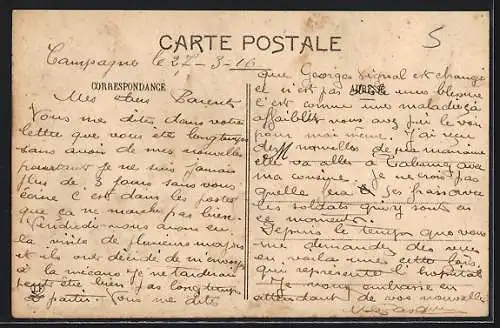 CARTE POSTALE
5
Campagne le 27-3-16
CORRESPONDANCE
Mes chers Parents
Vous me dites dans votre
lettre que vous ête longtemps
sans avoir de mes nouvelles
pourtant je ne suis jamais
plus de 3 jours sans vous
écrire c est dans les postes
que ça ne marche pas bien.
Vendredi nous avons eu
la visite de plusieurs majors
et ils ont décidé de m'envoyer
à la mécano je ne tarderai
peut être bien pas longtemps
à partir. Vous me dite
que Georges Vignal est changé
et n'est pas une blessure
c'est comme une maladie ça
affaiblit nous avons qu'à le voir
pour moi même. J'ai reçu
des nouvelles de ma marraine
elle va aller à Cabourg avec
ma cousine. Je ne crois pas
quelle fera ses frais avec
les soldats qu'il y sont en
ce moment.
Depuis le temps que vous
me demander des vues
en voila une cette fois
qui représente l'hopital
Je vous embrasse en
attendant de vos nouvelles